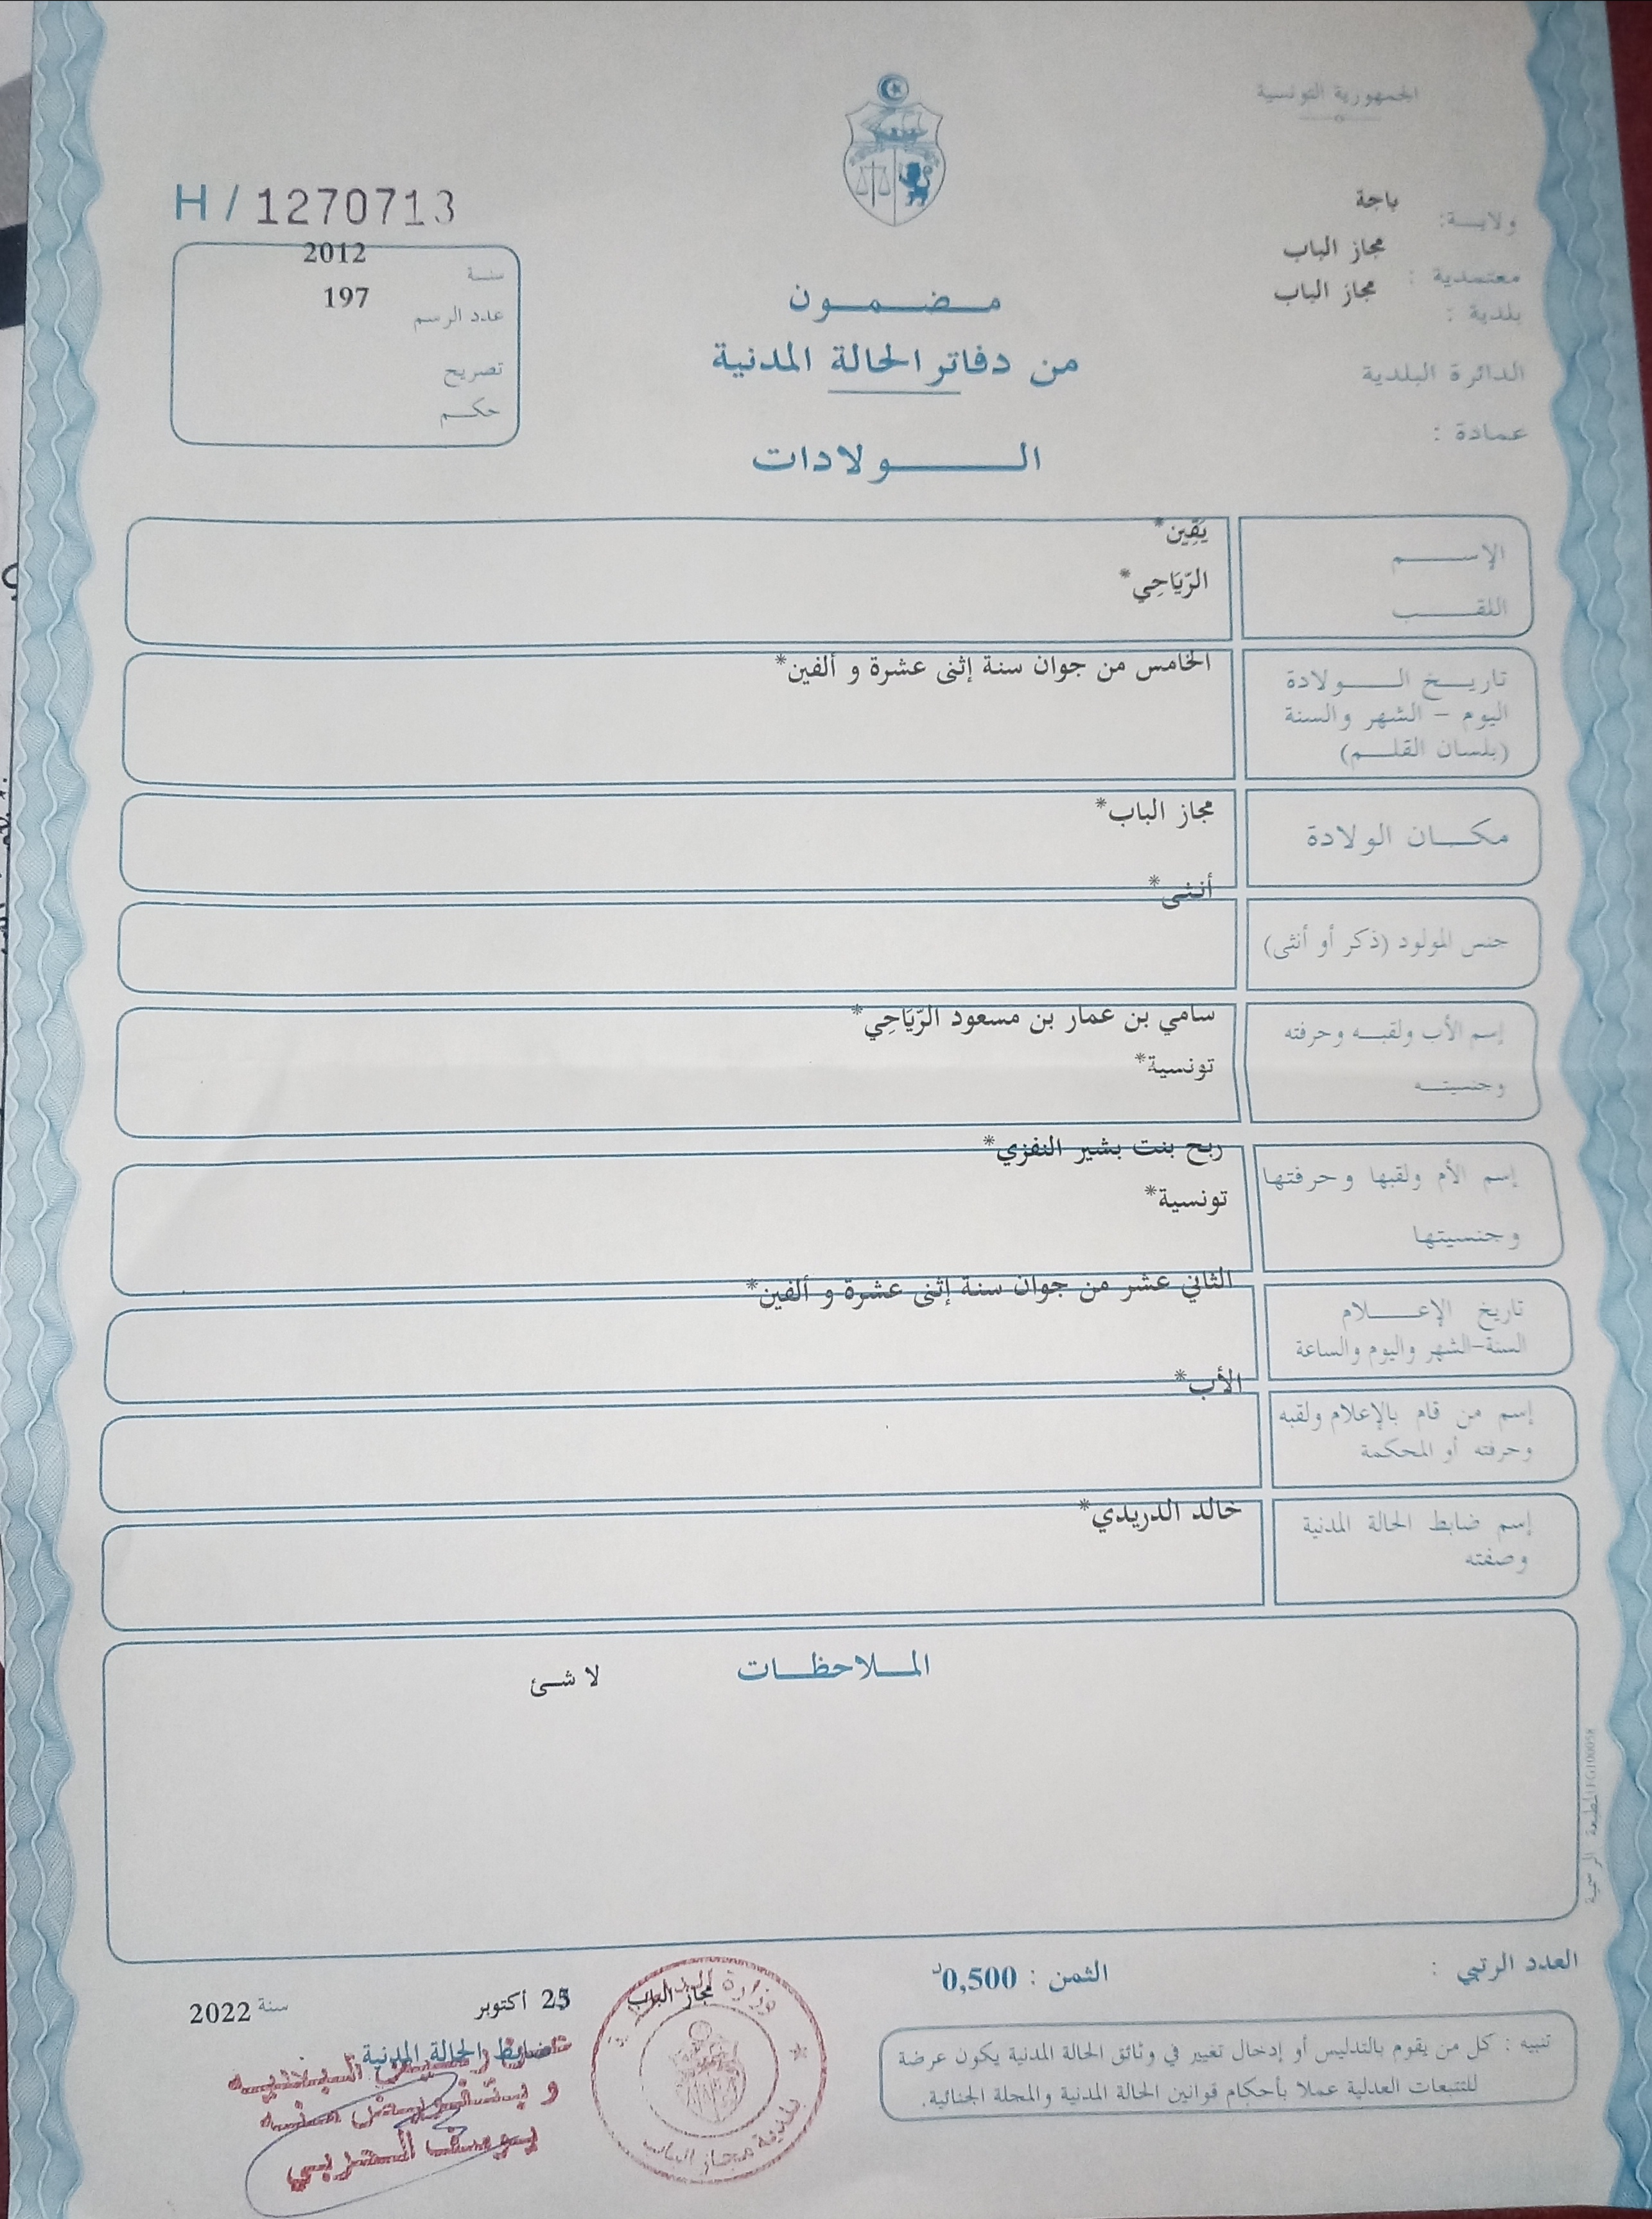 الجمهورية التونسية
ولايــة: باجة
معتمدية : مجاز الباب
بلدية : مجاز الباب
الدائرة البلدية
عمادة :
H / 1270713
سنة 2012
عدد الرسم 197
تصريح
حكم
مضمون
من دفاتر الحالة المدنية
الولادات
الإسم يَقِين*
اللقب الرّيَاحِي*
تاريخ الولادة الخامس من جوان سنة إثنى عشرة و ألفين*
اليوم - الشهر والسنة
(بلسان القلم)
مكان الولادة مجاز الباب*
جنس المولود (ذكر أو أنثى) أنثى*
إسم الأب ولقبه وحرفته سامي بن عمار بن مسعود الرّيَاحِي*
وجنسيته تونسية*
إسم الأم ولقبها وحرفتها ربح بنت بشير النفزي*
وجنسيتها تونسية*
تاريخ الإعلام الثاني عشر من جوان سنة إثنى عشرة و ألفين*
السنة-الشهر واليوم والساعة
إسم من قام بالإعلام ولقبه الأب*
وحرفته أو المحكمة
إسم ضابط الحالة المدنية خالد الدريدي*
وصفته
الملاحظات لا شئ
المطبعة الرسمية
العدد الرتبي :
الثمن : 0,500د
تنبيه : كل من يقوم بالتدليس أو إدخال تغيير في وثائق الحالة المدنية يكون عرضة
للتتبعات العدلية عملا بأحكام قوانين الحالة المدنية والمجلة الجنائية.
مجاز الباب 25 أكتوبر سنة 2022
ضابط الحالة المدنية
عن رئيس البلدية
وبتفويض منه
يوسف الحربي
وزارة
بلدية مجاز الباب